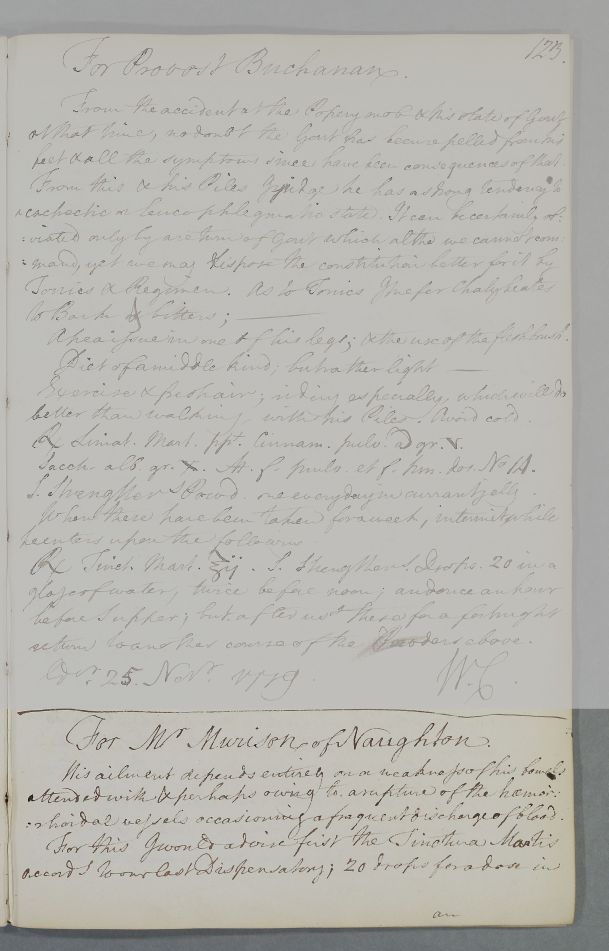 123.
For Provost Buchanan.
From the accident at the Popery mob & his state of Gout
at that time, no doubt the Gout has been repelled from his
feet & all the symptoms since have been consequences of that.
From this & his Piles I judge he has a strong tendency to
a cachectic or leucophlegmatic state. It can be certainly ob:
:viated only by a return of Gout which altho we cannot com:
:mand, yet we may dispose the constitution better for it by
Tonics & Regimen. As to Tonics I prefer Chalybeates
to Bark & bitters;
A pea issue in one of his legs; & the use of the flesh brush.
Diet of a middle kind; but rather light
Exercise & fresh air; riding especially, which will do
better than walking with his Piles. Avoid cold.
℞ Limat. Mart. ppt. Cinnam. pulv. a͞a gr. v.
Sacch. alb. gr. x. M. f. pulv. et f. hm. dos. No 14.
S. Strengthens Powd. one every day in currant jelly.
When these have been taken for a week, intermit while
he enters upon the following
℞ Tinct. Mart. ℥ij. S. Strengthen S. Drops. 20 in a
glass of water, twice before noon; and once an hour
before Supper; but after us͞g these for a fortnight
return to another course of the Powders above.
Edr. 25. Novr. 1779. W.C.
For Mr Murison of Naughton.
His ailment depends entirely on a weakness of his bowels
attended with & perhaps owing to a rupture of the hæmor:
:rhoidal vessels occasioning a frequent discharge of blood.
For this I would advise first the Tinctura Martis
accordg to our last Dispensatory; 20 drops for a dose in
an